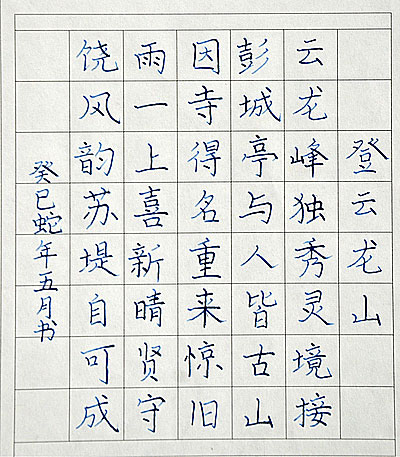 登云龙山
云龙峰独秀灵境接
彭城亭与人皆古山
因寺得名重来惊旧
雨一上喜新晴贤守
饶风韵苏堤自可成
癸巳蛇年五月书